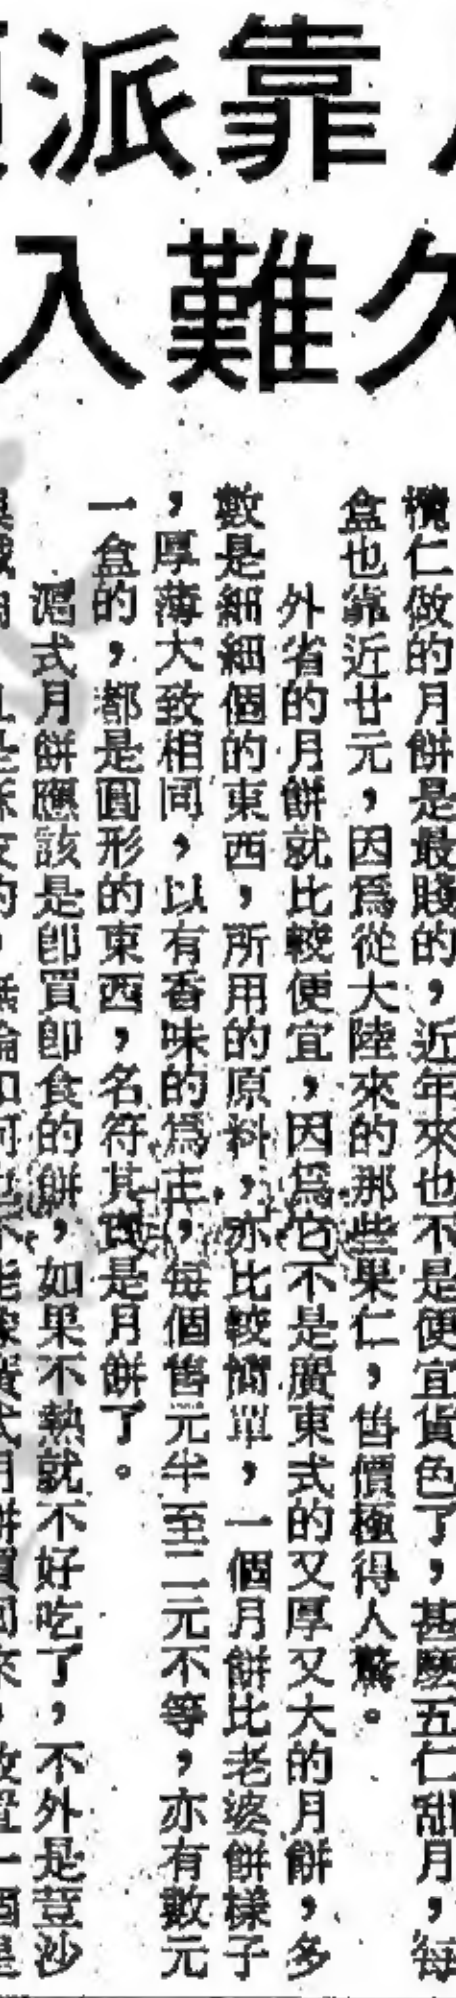 派靠
入難久
欖仁做的月餅是最賤的，近年來也不是便宜貨色了，甚麼五仁甜月，每
盒也靠近廿元，因爲從大陸來的那些果仁，售價極得人驚。
外省的月餅就比較便宜，因爲它不是廣東式的又厚又大的月餅，多
數是細細個的東西，所用的原料，亦比較簡單，一個月餅比老婆餅樣子
，厚薄大致相同，以有香味的爲主，每個售元半至二元不等，亦有數元
一盒的，都是圓形的東西，名符其實是月餅了。
滬式月餅應該是即買即食的餅，如果不熱就不好吃了，不外是荳沙